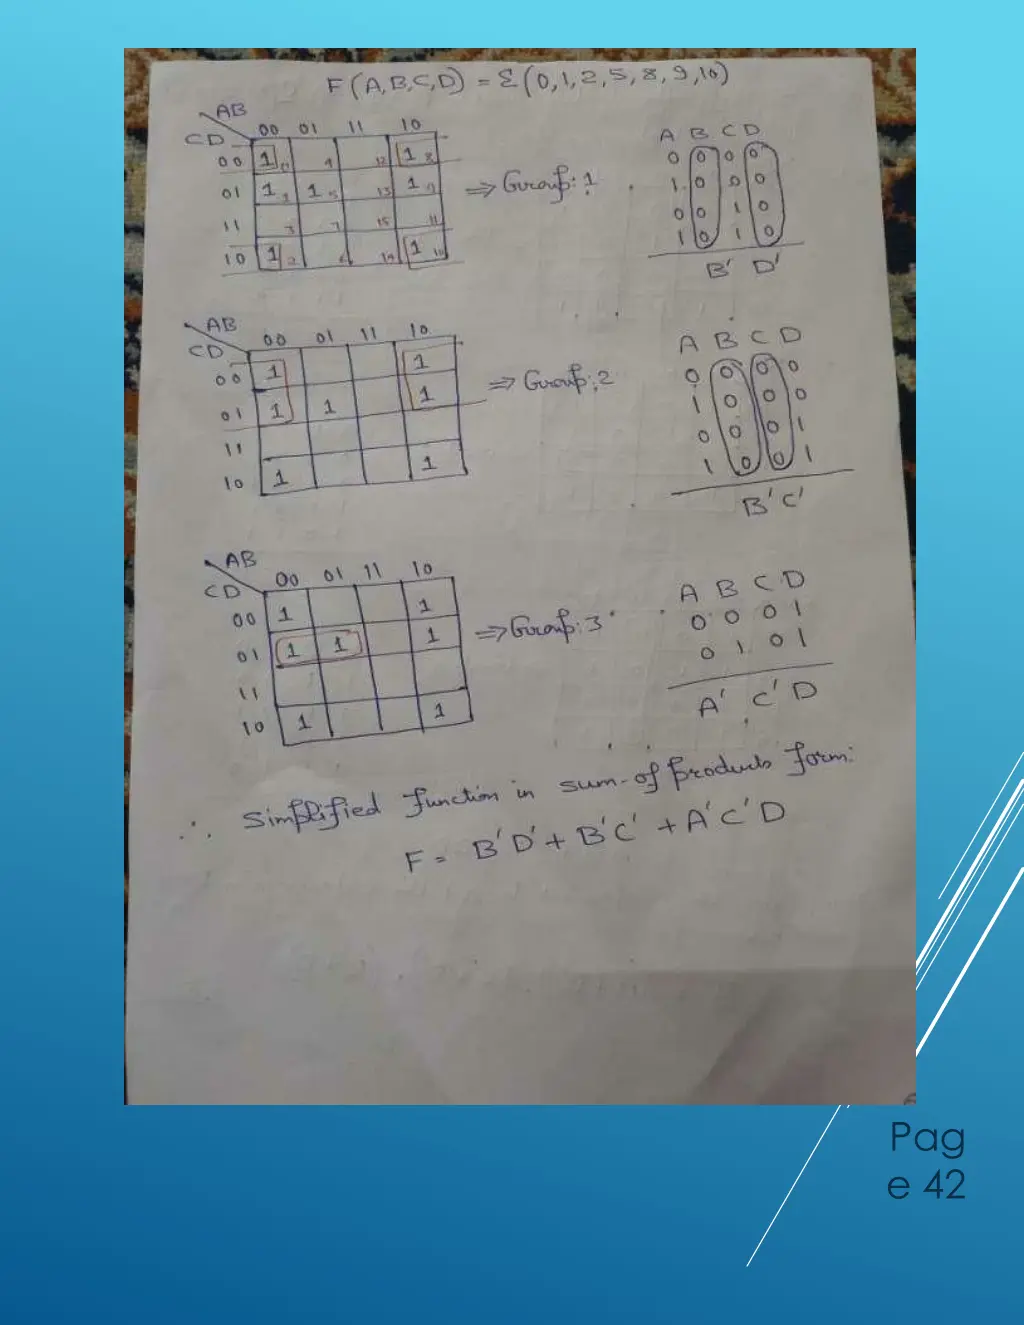 F(A,B,C,D) = Σ(0,1,2,5,8,9,10)
AB
CD 00 01 11 10
00 1 0 4 12 1 8
01 1 1 1 5 13 1 9
11 3 7 15 11
10 1 2 6 14 1 10
⇒ Group: 1
A B C D
0 0 0 0
1 0 0 0
0 0 1 0
1 0 1 0
B' D'
AB
CD 00 01 11 10
00 1 1
01 1 1 1
11
10 1 1
⇒ Group: 2
A B C D
0 0 0 0
1 0 0 0
0 0 0 1
1 0 0 1
B' C'
AB
CD 00 01 11 10
00 1 1
01 1 1 1
11
10 1 1
⇒ Group: 3
A B C D
0 0 0 1
0 1 0 1
A' C' D
∴ Simplified function in sum-of products form:
F = B'D' + B'C' + A'C'D
Pag
e 42